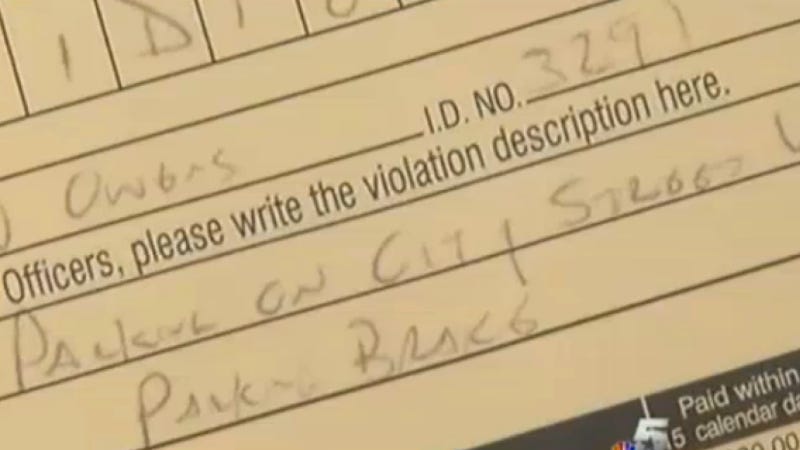 I D
I.D. NO. 3291
Owens
Officers, please write the violation description here.
Parking on City Street
Parking Brake
Paid within
5 calendar da
5